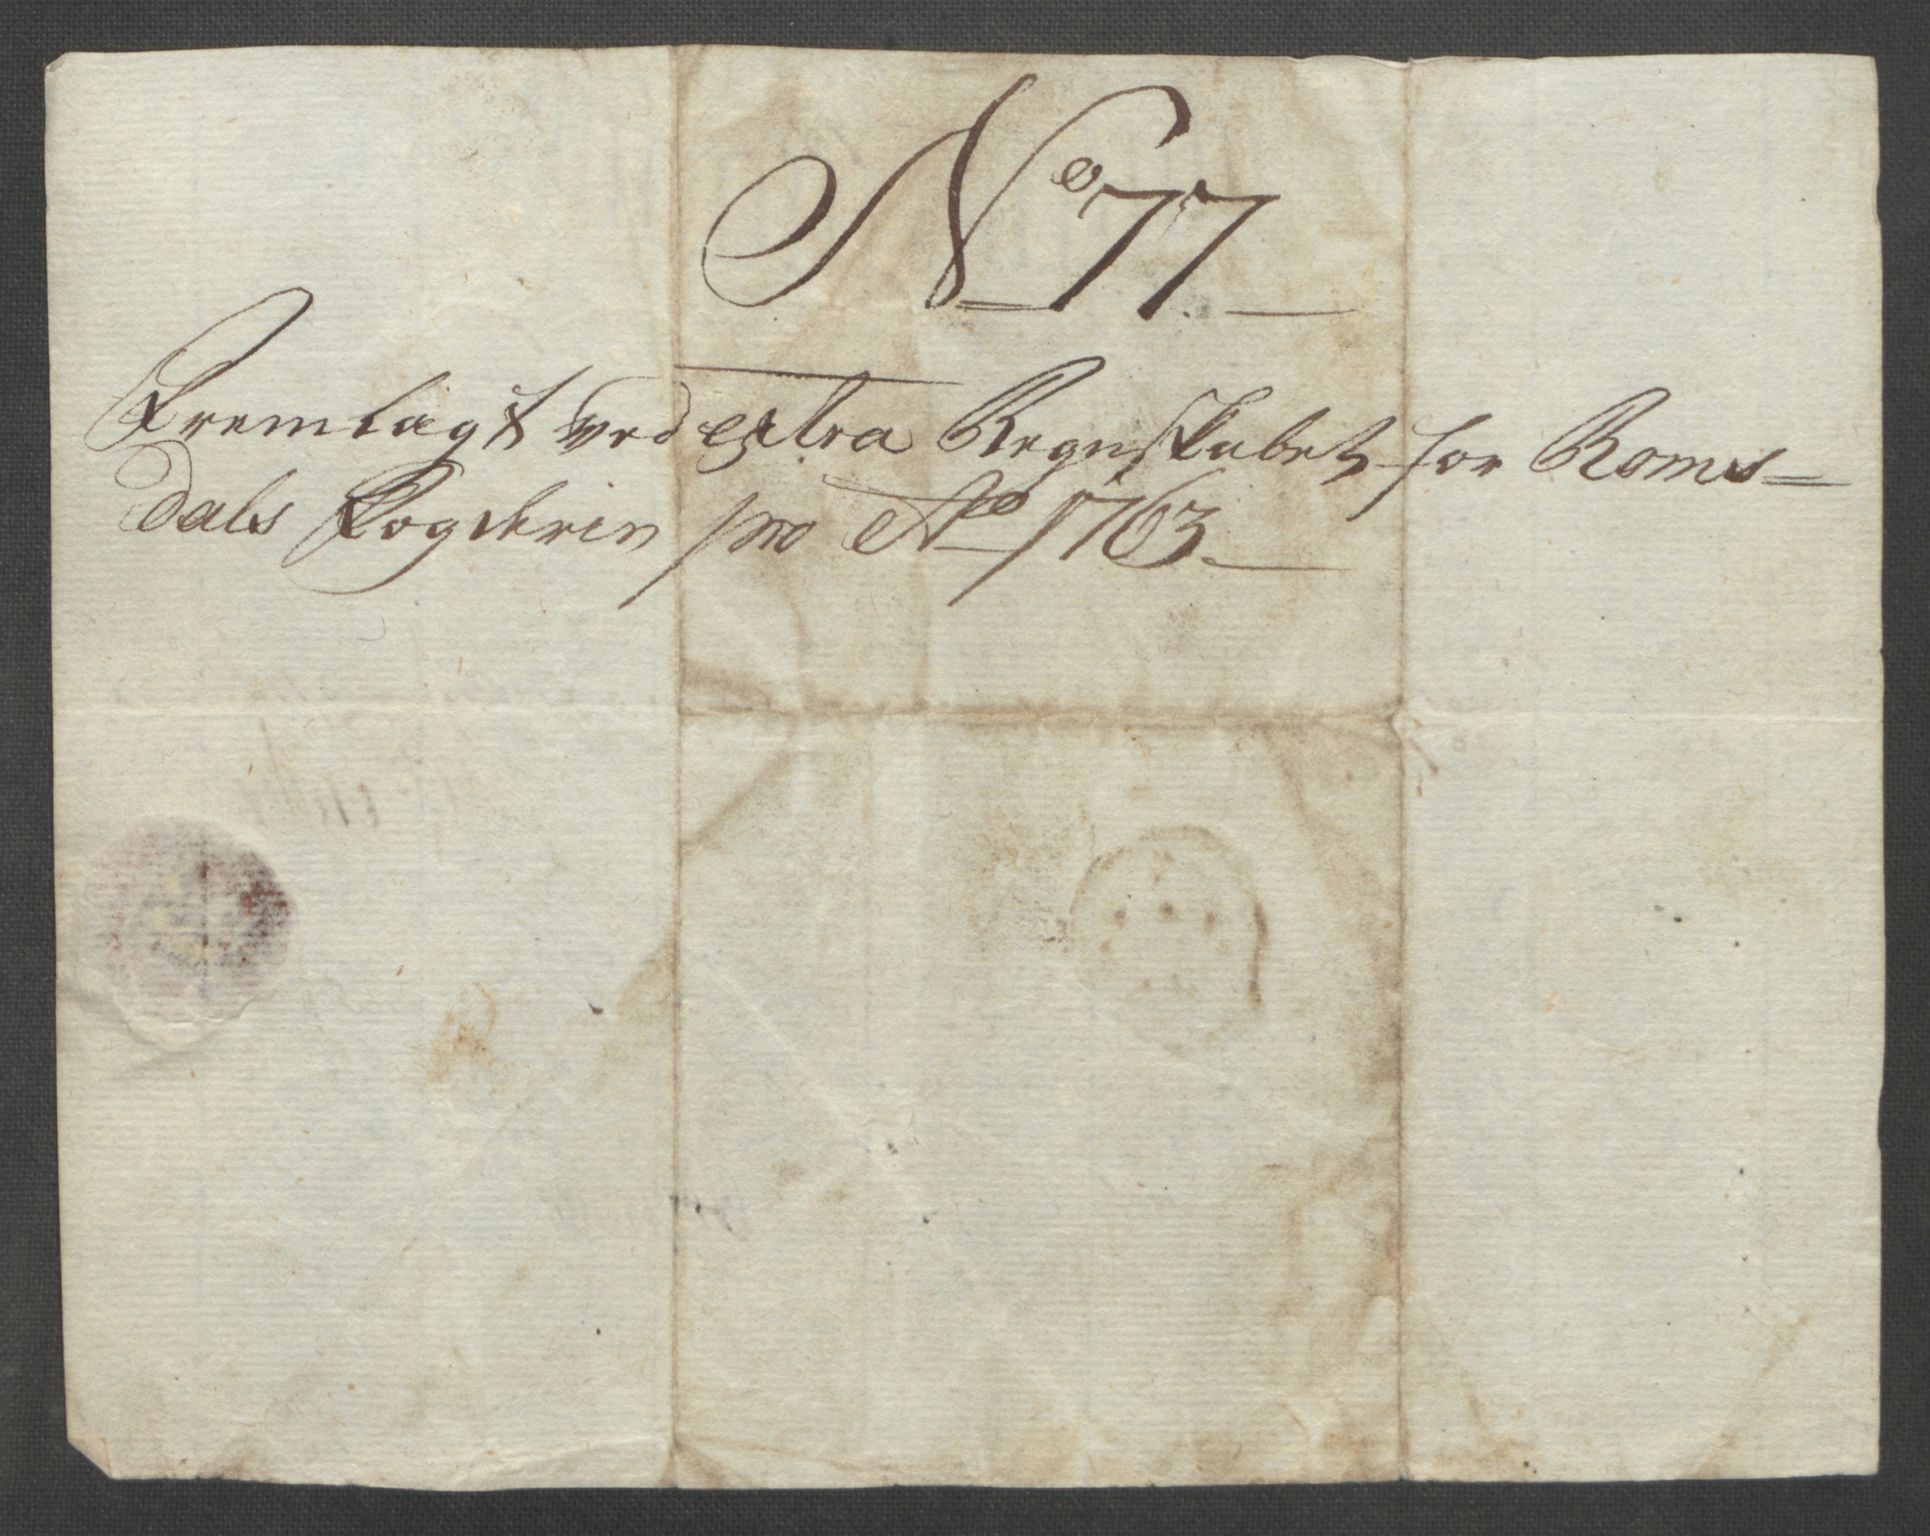 No 77
Fremlagt ved extra Regnskabet for Roms=
dals Fogderie pro Ao 1763